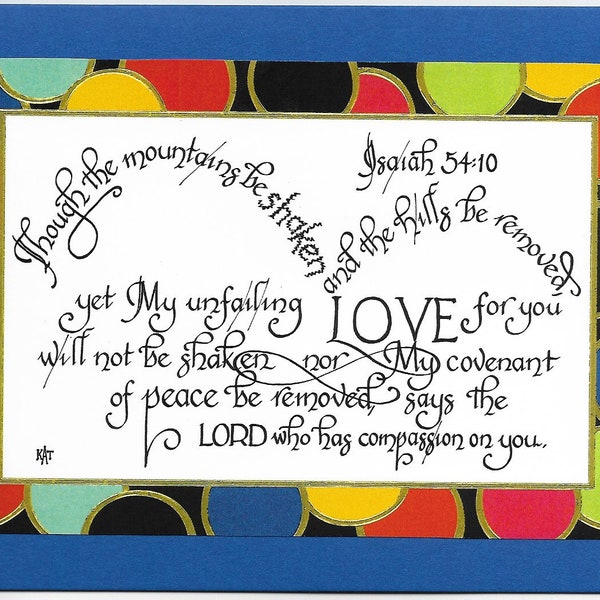 Though the mountains be shaken
Isaiah 54:10
and the hills be removed,
yet My unfailing LOVE for you
will not be shaken nor My covenant
of peace be removed, says the
LORD who has compassion on you.
KAT